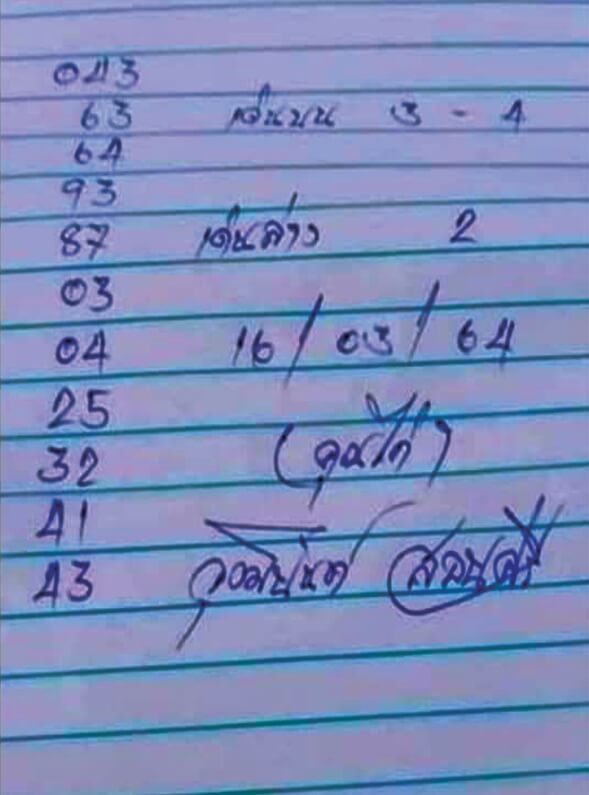 043
63 เด่นบน 3 - 4
64
93
87 เด่นล่าง 2
03
04 16 / 03 / 64
25
32 (คุณไก่)
41
43